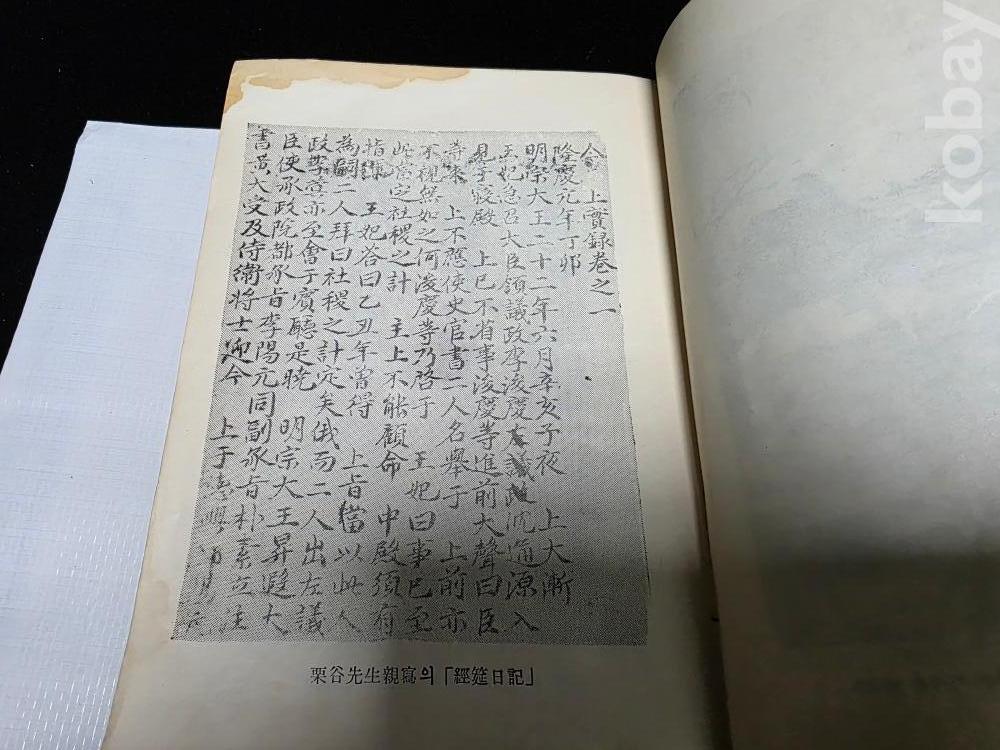 今 上實録卷之一
隆慶元年丁卯
明宗大王二十二年六月辛亥子夜 上大漸
王妃急召大臣領議政李浚慶 沈通源入
見于寢殿 上已不省事浚慶等進前大聲曰臣
等來 上不應使史官書二人名舉于 上前亦
不視無如之何浚慶等乃啓于 王妃曰事已至
此當定社稷之計 主上不能顧命 中殿須有
指揮 王妃答曰乙丑年曾得 上旨當以此人
為嗣二人拜曰社稷之計定矣俄而二人出左議
政李蓂亦至會于賓廳是曉 明宗大王昇遐大
臣使承政院都承旨李陽元同副承旨朴素立注
書黃大受及侍衛将士迎今 上于
栗谷先生親寫의「經筵日記」
kobay